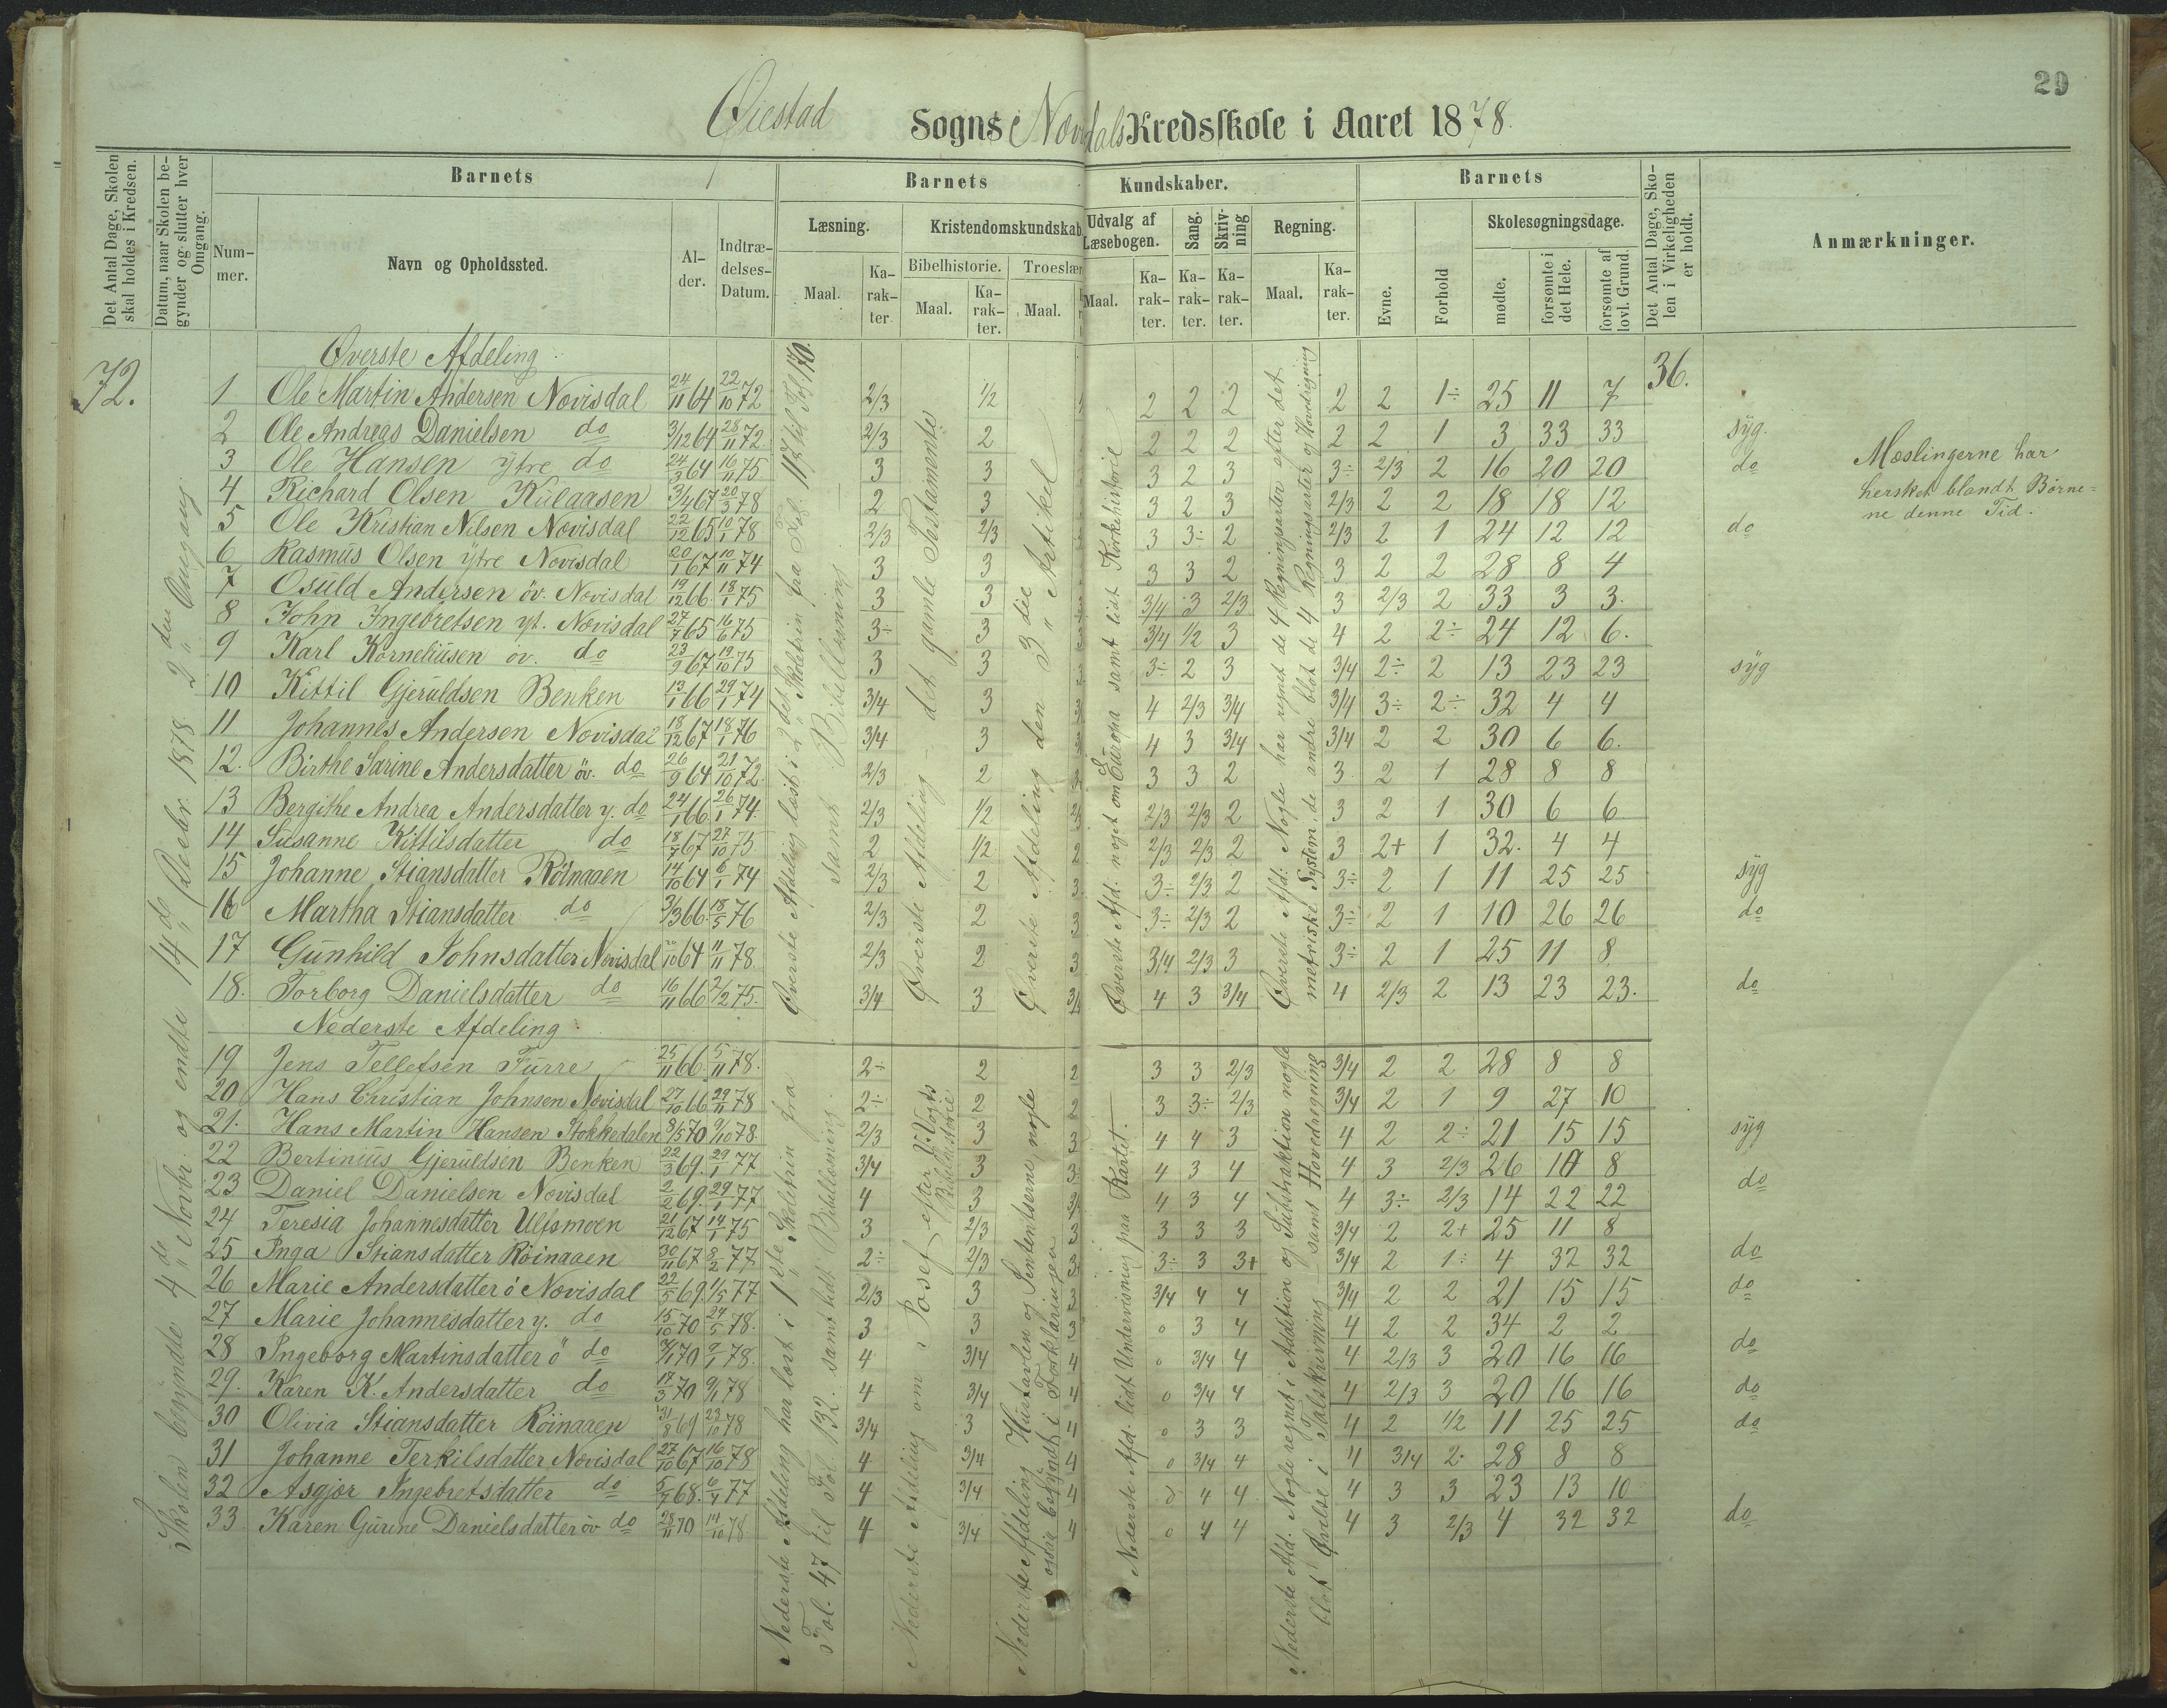 29
Øiestad Sogns Novisdals Kredsskole i Aaret 1878.
Det Antal Dage, Skolen skal holdes i Kredsen.
Datum, naar Skolen begynder og slutter hver Omgang.
Barnets
Nummer.
Navn og Opholdssted.
Alder.
Indtrædelses-Datum.
Barnets Kundskaber.
Læsning.
Maal.
Karakter
Kristendomskundskab.
Bibelhistorie.
Maal.
Karakter.
Troeslær
Maal.
Udvalg af Læsebogen.
Maal.
Karakter.
Sang.
Karakter.
Skrivning
Karakter.
Regning.
Maal.
Karakter.
Barnets
Evne.
Forhold
Skolesøgningsdage.
mødte.
forsømte i det Hele.
forsømte af lovl. Grund.
Det Antal Dage, Skolen i Virkeligheden er holdt.
Anmærkninger.
72.
36.
Skolen begyndte 4de Novbr. og endte 14de Decbr. 1878 2den Omgang.
Øverste Afdeling.
1 Ole Martin Andersen Novisdal 24/11 64 22/10 72 2/3 1/2 2 2 2 2 2 1÷ 25 11 7
2 Ole Andreas Danielsen do 3/12 64 28/11 72 2/3 2 2 2 2 2 2 1 3 33 33 syg.
3 Ole Hansen ytre do 24/3 64 16/11 75 3 3 3 2 3 3÷ 2/3 2 16 20 20 do
4 Richard Olsen Kulaasen 3/4 67 20/3 78 2 3 3 2 3 2/3 2 2 18 18 12
5 Ole Kristian Nilsen Novisdal 22/12 65 10/1 78 2/3 2/3 3 3÷ 2 2/3 2 1 24 12 12 do
6 Rasmus Olsen ytre Novisdal 20/1 67 10/11 74 3 3 3 3 2 3 2 2 28 8 4
7 Osuld Andersen öv. Novisdal 19/12 66 18/1 75 3 3 3/4 3 2/3 3 2/3 2 33 3 3.
8 John Ingebretsen yt. Novisdal 27/7 65 16/6 75 3÷ 3 3/4 1/2 3 4 2 2÷ 24 12 6.
9 Karl Korneliusen öv. do 23/9 67 19/10 75 3 3 3÷ 2 3 3/4 2÷ 2 13 23 23 syg
10 Kittil Gjeruldsen Benken 13/1 66 29/1 74 3/4 3 4 2/3 3/4 3/4 3÷ 2÷ 32 4 4
11 Johannes Andersen Novisdal 18/12 67 18/1 76 3/4 3 4 3 3/4 3/4 2 2 30 6 6.
12. Birthe Sarine Andersdatter öv. do 26/9 64 21/10 72 2/3 2 3 3 2 3 2 1 28 8 8
13 Bergithe Andrea Andersdatter y. do 24/1 66 26/1 74. 2/3 1/2 2/3 2/3 2 3 2 1 30 6 6
14 Susanne Kittilsdatter do 18/7 67 27/10 75 2 1/2 2/3 2/3 2 3 2+ 1 32. 4 4
15 Johanne Stiansdatter Röinaaen 14/10 64 6/1 74 2/3 2 3÷ 2/3 2 3÷ 2 1 11 25 25 syg
16 Martha Stiansdatter do 3/3 66 18/5 76 2/3 2 3÷ 2/3 2 3÷ 2 1 10 26 26 do
17 Gunhild Johnsdatter Novisdal 64 11/11 78. 2/3 2 3/4 2/3 3 3÷ 2 1 25 11 8
18. Torborg Danielsdatter do 16/11 66 2/2 75. 3/4 3 4 3 3/4 4 2/3 2 13 23 23. do
Nederste Afdeling
19 Jens Tellefsen Furre 25/11 66 5/11 78. 2÷ 2 3 3 2/3 3/4 2 2 28 8 8
20 Hans Christian Johnsen Novisdal 27/10 66 29/11 78 2÷ 2 3 3÷ 2/3 3/4 2 1 9 27 10
21. Hans Martin Hansen Stokkedalen 8/5 70 9/10 78. 2/3 3 4 4 3 4 2 2÷ 21 15 15 syg
22 Bertinius Gjeruldsen Benken 22/3 69. 29/1 77 3/4 3 4 3 4 4 3 2/3 26 10 8
23 Daniel Danielsen Novisdal 2/2 69. 29/1 77 4 3 4 3 4 4 3÷ 2/3 14 22 22 do
24 Teresia Johannesdatter Ulfsmoen 21/12 67 14/1 75 3 2/3 3 3 3 3/4 2 2+ 25 11 8
25 Inga Stiansdatter Röinaaen 30/11 67 8/2 77 2÷ 2/3 3÷ 3 3+ 3/4 2 1÷ 4 32 32 do
26 Marie Andersdatter ö Novisdal 22/5 69. 1/5 77 2/3 3 3/4 4 4 3/4 2 2 21 15 15 do
27 Marie Johannesdatter y. do 15/10 70 24/5 78. 3 3 0 3 4 4 2 2 34 2 2
28 Ingeborg Martinsdatter ö do 70 9/1 78. 4 3/4 0 3/4 4 4 2/3 3 20 16 16 do
29. Karen K. Andersdatter do 17/3 70 9/1 78 4 3/4 0 3/4 4 4 2/3 3 20 16 16 do
30 Olivia Stiansdatter Röinaaen 31/8 69 23/10 78 3/4 3 0 3 3 4 2 1/2 11 25 25. do
31 Johanne Terkilsdatter Novisdal 27/10 67 16/10 78 4 3/4 0 3/4 4 4 3/4 2 28 8 8
32 Asgjor Ingebretsdatter do 5/7 68. 6/4 77 4 3/4 0 4 4 4 3 3 23 13 10
33 Karen Gurine Danielsdatter öv do 28/11 70 14/10 78. 4 3/4 0 4 4 4 3 2/3 4 32 32 do
Øverste Afdeling læst i 2det Skoletrin fra Fol. 117 til Fol. 170.
samt Bibellæsning
Øverste Afdeling det gamle Testamente
Øverste Afdeling den 3die Artikel
Øverste Afd. noget om Europa samt lidt Kirkehistorie
Øverste Afd. Nogle har regnet de 4 Regningsarter efter det
metriske System, de andre blot de 4 Regningsarter og Hovedregning
Nederste Afdeling har læst i 1ste Skoletrin fra
Fol. 47 til Fol. 132. samt lidt Bibellæsning.
Nederste Afdeling om Josef efter V. Vogts
Bibelhistorie
Nederste Afdeling Hustavlen og Sententserne, nogle
ogsaa begyndt i Forklaringen
Nederste Afd. lidt Undervisning paa Kartet.
Nederste Afd. Nogle regnet i Addition og Substraktion nogle
blot Øvelse i Talskrivning samt Hovedregning
Mæslingerne har
hersket blandt Børne=
ne denne Tid.